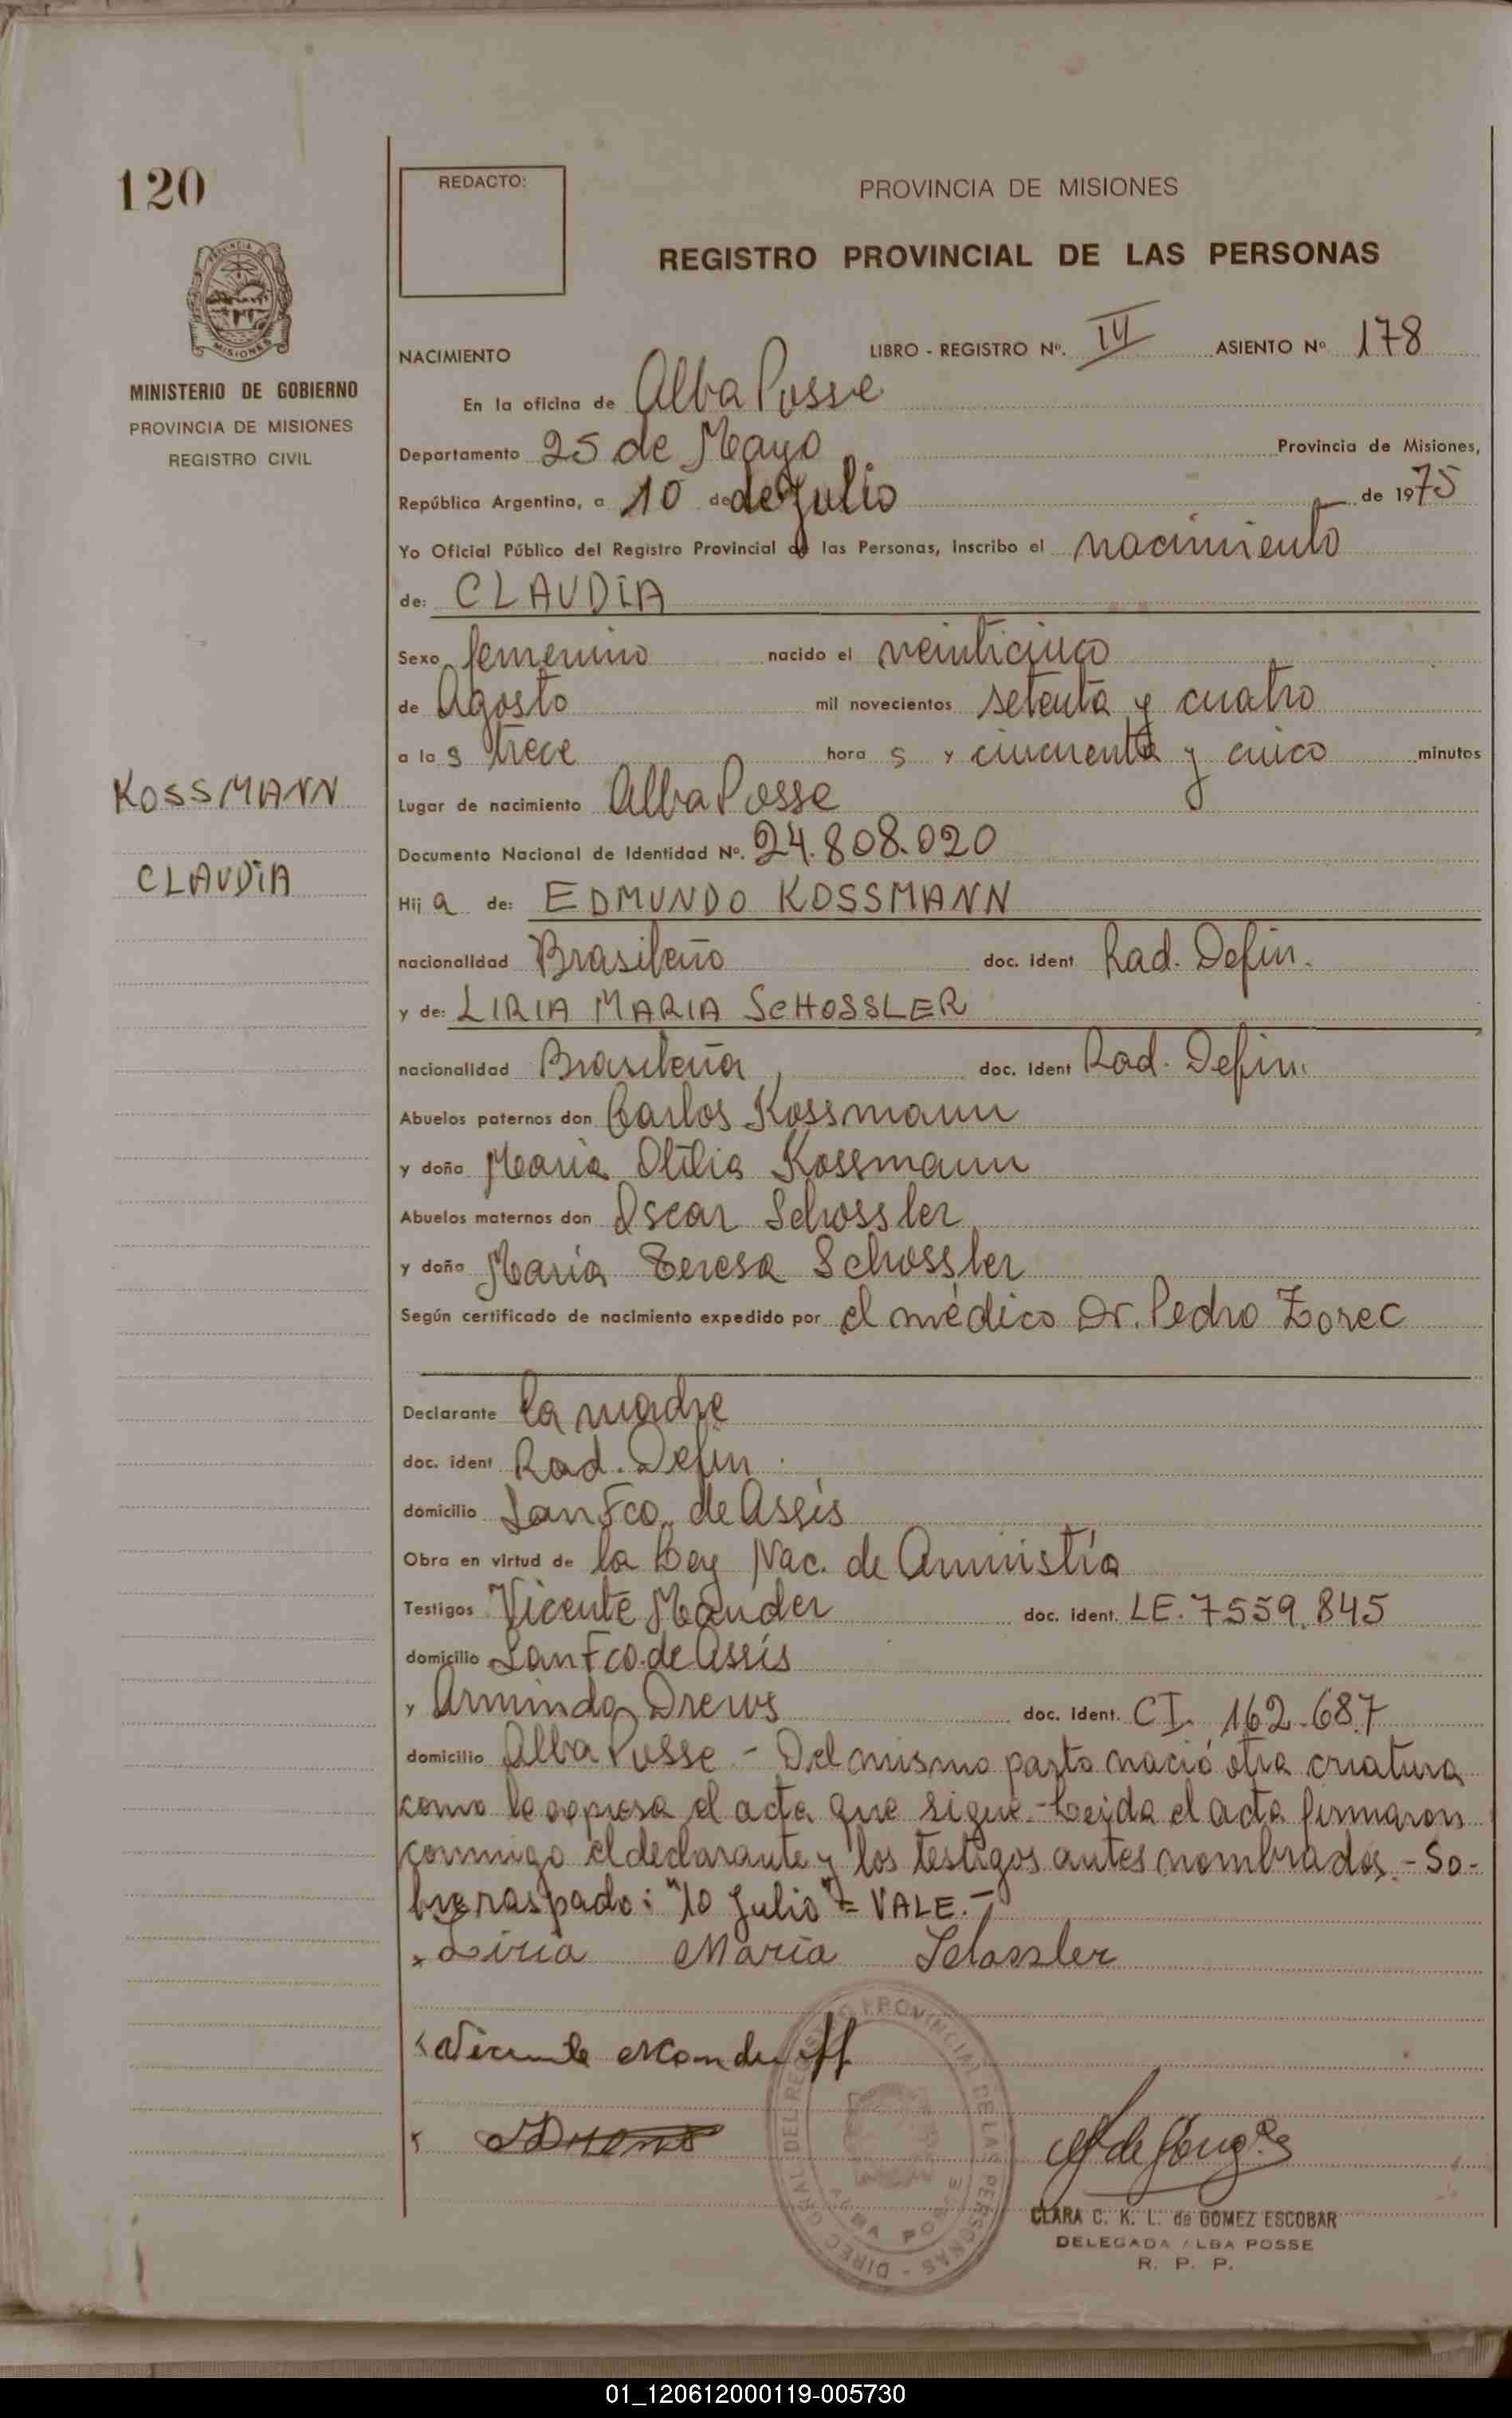 120
REDACTO:
PROVINCIA DE MISIONES
REGISTRO PROVINCIAL DE LAS PERSONAS
MISIONES
MINISTERIO DE GOBIERNO
PROVINCIA DE MISIONES
REGISTRO CIVIL
NACIMIENTO
LIBRO - REGISTRO Nº. IV ASIENTO Nº 178
En la oficina de Alba Posse
Departamento 25 de Mayo Provincia de Misiones,
República Argentina, a 10 de de Julio de 1975
Yo Oficial Público del Registro Provincial de las Personas, Inscribo el nacimiento
de: CLAUDIA
Sexo femenino nacido el veinticinco
de Agosto mil novecientos setenta y cuatro
a las trece horas y cincuenta y cinco minutos
KOSSMANN
CLAUDIA
Lugar de nacimiento Alba Posse
Documento Nacional de Identidad Nº. 24.808.020
Hija de: EDMUNDO KOSSMANN
nacionalidad Brasileño doc. ident Rad. Defin.
y de: LIRIA MARIA SCHOSSLER
nacionalidad Brasileña, doc. Ident Rad. Defin.
Abuelos paternos don Carlos Kossmann
y doña Maria Otilia Kossmann
Abuelos maternos don Oscar Schossler
y doña Maria Teresa Schossler
Según certificado de nacimiento expedido por el médico Dr. Pedro Zorec
Declarante la madre
doc. ident Rad. Defin.
domicilio San Fco. de Assis
Obra en virtud de la Ley Nac. de Amnistía
Testigos Vicente Mander doc. ident. LE. 7559.845
domicilio San Fco. de Assis
y Armindo Drews doc. Ident. CI. 162.687
domicilio Alba Posse - Del mismo parto nació otra criatura
como lo expresa el acta que sigue.- Leida el acta firmaron
conmigo el declarante y los testigos antes nombrados.- So-
breraspado: "10 Julio" = VALE.-
x Liria Maria Schossler
Vicente
DIREC GRAL DEL REGISTRO PROVINCIAL DE LAS PERSONAS
ALBA POSSE
CLARA C. K. L. de GOMEZ ESCOBAR
DELEGADA ALBA POSSE
R. P. P.
01_120612000119-005730